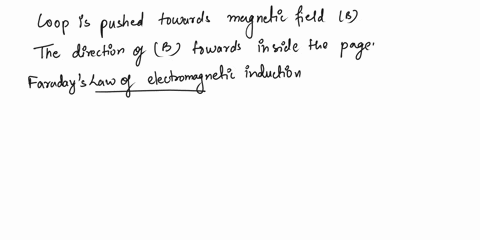 Loop is pushed towards magnetic field (B)
The direction of (B) towards inside the page.
Faraday's Law of electromagnetic induction